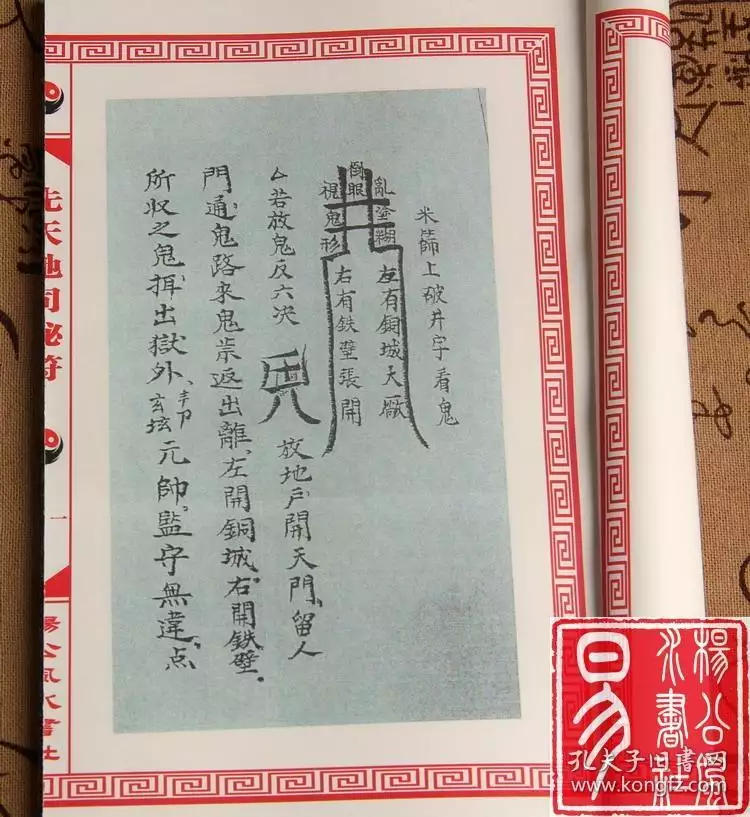 米篩上破井字看鬼
亂塗糊
左有銅城大廠
倒眼
視鬼形
右有鉄壁張開
△若放鬼反六决
放地戶開天門、留人
門通鬼路来鬼祟返出離、左開銅城、右開鉄壁。
所収之鬼、揖出獄外、
玄坛
元帥、監守無違、点、
先天地司秘符
一
楊公風水書社
易
楊公風水書社
孔夫子旧書网
www.kongfz.com